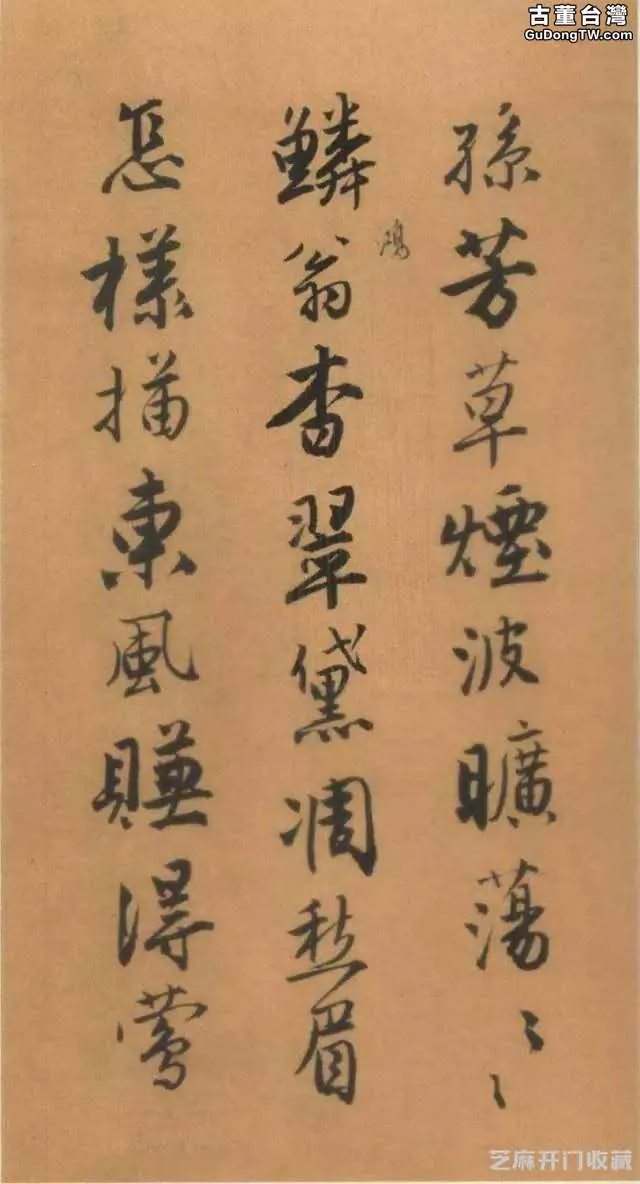 古董台灣
GuDongTW.com
孫芳草煙波曠蕩〻
鴻
鱗翁杳翠黛凋愁眉
怎樣描東風賺得鶯
芝麻开门收藏